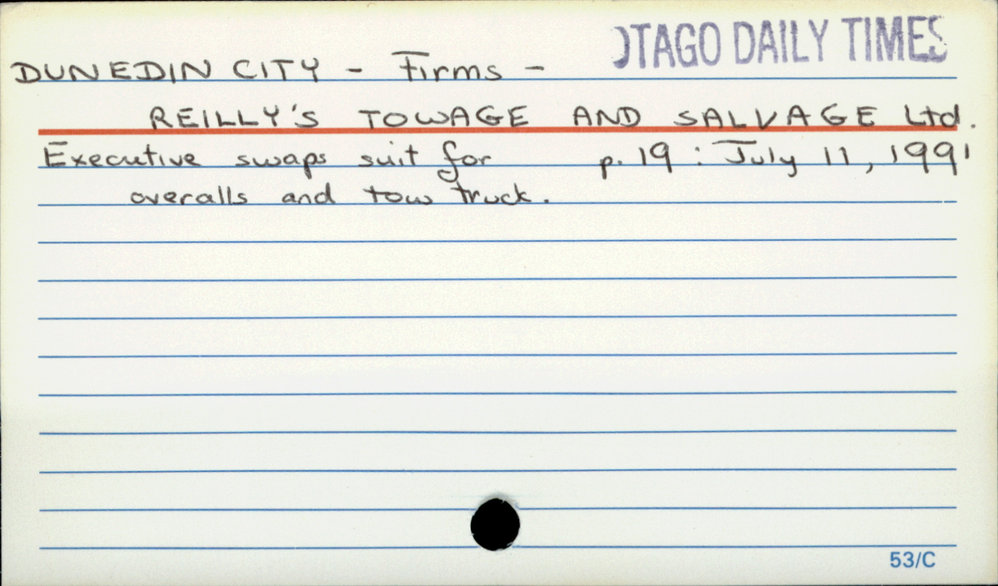 OTAGO DAILY TIMES
DUNEDIN CITY - Firms -
REILLY'S TOWAGE AND SALVAGE Ltd.
Executive swaps suit for p. 19 : July 11, 1991
overalls and tow truck.
53/C